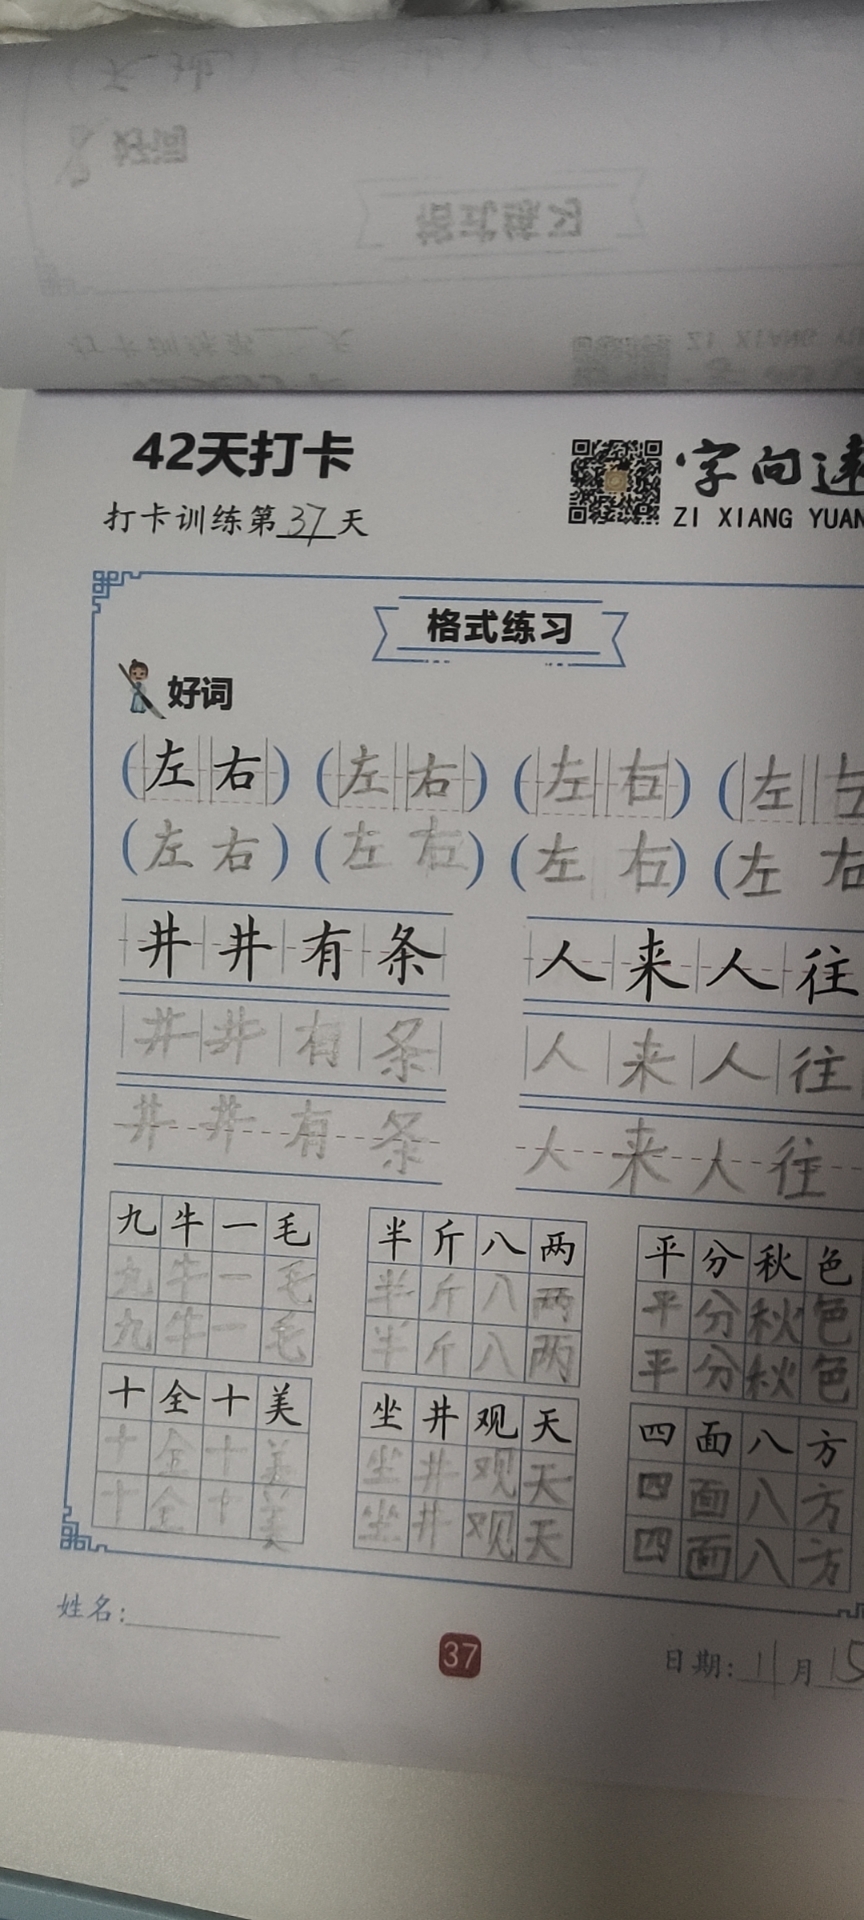 42天打卡
打卡训练第37天
字向
ZI XIANG YUAN
格式练习
好词
(左右)(左右)(左右)(左右
(左右)(左右)(左右)(左右
井井有条 人来人往
井井有条 人来人往
井井有条 人来人往
九牛一毛 半斤八两 平分秋色
九牛一毛 半斤八两 平分秋色
九牛一毛 半斤八两 平分秋色
十全十美 坐井观天 四面八方
十全十美 坐井观天 四面八方
十全十美 坐井观天 四面八方
姓名:
37
日期: 11月15